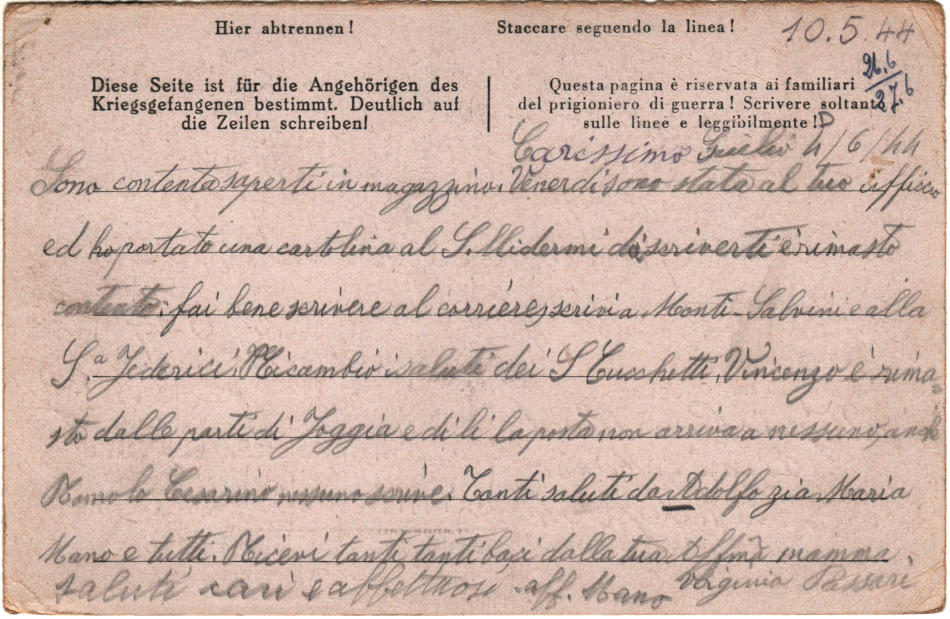 Hier abtrennen!
Staccare seguendo la linea!
10.5.44
26.6
27.6
Diese Seite ist für die Angehörigen des
Kriegsgefangenen bestimmt. Deutlich auf
die Zeilen schreiben!
Questa pagina è riservata ai familiari
del prigioniero di guerra! Scrivere soltanto
sulle linee e leggibilmente!
Carissimo Giulio 4/6/44
Sono contenta saperti in magazzino. Venerdi sono stata al tuo ufficio
ed ho portato una cartolina al S. di scriverti è rimasto
contento: fai bene scrivere al corriere, scrivi a Monti-Salvini e alla
S.a Federici. Ricambio i saluti dei S Cucchetti. Vincenzo é rima=
sto dalle parti di Foggia e di li la posta non arriva a nessuno, anche
Romolo Cesarino nessuno scrive. Tanti saluti da Adolfo zia Maria
Nano e tutti. Ricevi tanti tanti baci dalla tua Affma mamma
saluti cari e affettuosi aff. Nano Virginia Passari